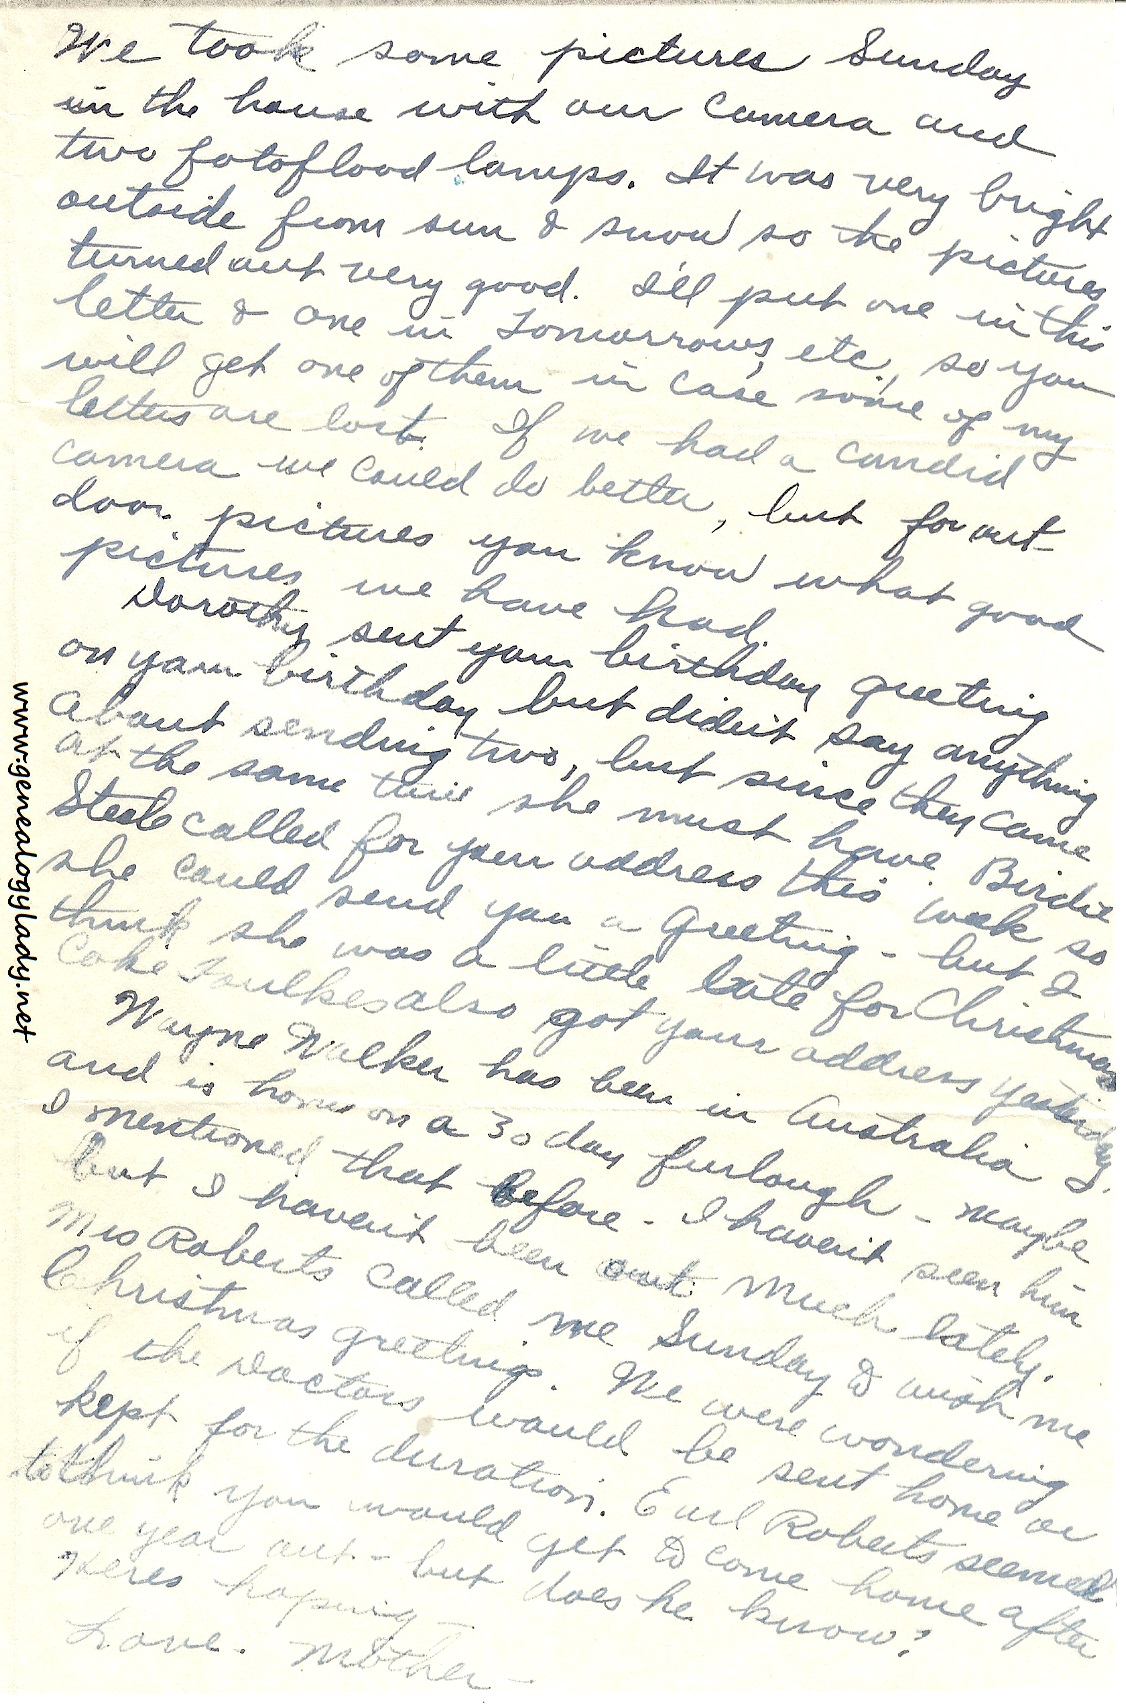 We took some pictures Sunday
in the house with our camera and
two fotoflood lamps. It was very bright
outside from sun & snow so the pictures
turned out very good. I'll put one in this
letter & one in Tomorrows, etc, so you
will get one of them in case some of my
letters are lost. If we had a candid
camera we could do better, but for out-
door pictures you know what good
pictures we have had.
Dorothy sent your birthday greeting
on your birthday but didn't say anything
about sending two, but since they came
at the same time she must have. Birdie
Steele called for your address this week so
she could send you a greeting - but I
think she was a little late for Christmas
Coke Foulkes also got your address yesterday.
Wayne Walker has been in Australia &
and is home on a 30 day furlough - maybe
I mentioned that before - I haven't seen him
but I haven't been out much lately.
Mrs Roberts called me Sunday to wish me
Christmas greetings. We were wondering
if the Doctors would be sent home or
kept for the duration. Earl Roberts seemed
to think you would get to come home after
one year out - but does he know?
Heres hoping -
Love. Mother -
www.genealogylady.net